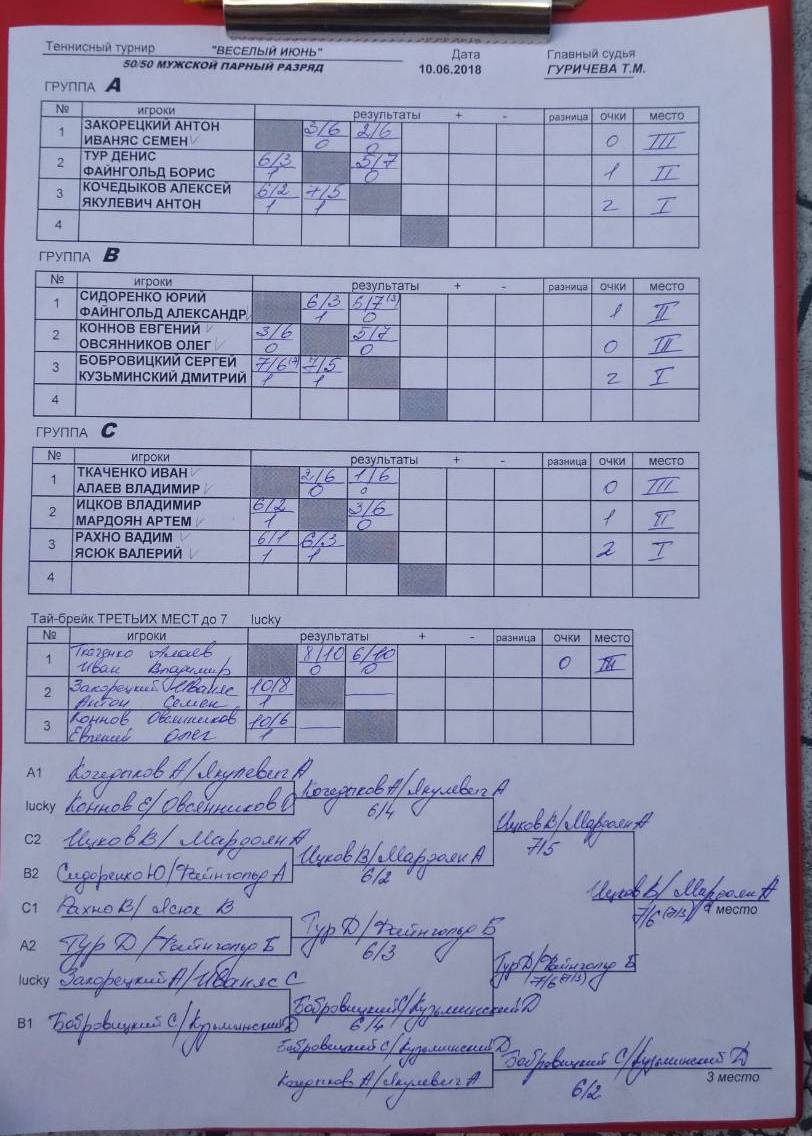 Теннисный турнир "ВЕСЕЛЫЙ ИЮНЬ" Дата Главный судья
50/50 МУЖСКОЙ ПАРНЫЙ РАЗРЯД 10.06.2018 ГУРИЧЕВА Т.М.
ГРУППА A
№ игроки результаты + - разница очки место
1 ЗАКОРЕЦКИЙ АНТОН 3/6 2/6
ИВАНЯС СЕМЕН 0 0 0 III
2 ТУР ДЕНИС 6/3 5/7
ФАЙНГОЛЬД БОРИС 1 0 1 II
3 КОЧЕДЫКОВ АЛЕКСЕЙ 6/2 7/5
ЯКУЛЕВИЧ АНТОН 1 1 2 I
4
ГРУППА B
№ игроки результаты + - разница очки место
1 СИДОРЕНКО ЮРИЙ 6/3 6/7(3)
ФАЙНГОЛЬД АЛЕКСАНДР 1 0 1 II
2 КОННОВ ЕВГЕНИЙ 3/6 5/7
ОВСЯННИКОВ ОЛЕГ 0 0 0 III
3 БОБРОВИЦКИЙ СЕРГЕЙ 7/6 7/5
КУЗЬМИНСКИЙ ДМИТРИЙ 1 1 2 I
4
ГРУППА C
№ игроки результаты + - разница очки место
1 ТКАЧЕНКО ИВАН 2/6 1/6
АЛАЕВ ВЛАДИМИР 0 0 0 III
2 ИЦКОВ ВЛАДИМИР 6/2 3/6
МАРДОЯН АРТЕМ 1 0 1 II
3 РАХНО ВАДИМ 6/1 6/3
ЯСЮК ВАЛЕРИЙ 1 1 2 I
4
Тай-брейк ТРЕТЬИХ МЕСТ до 7 lucky
№ игроки результаты + - разница очки место
1 Ткаченко Алаев 8/10 6/10
Иван Владимир 0 0 0 III
2 Закорецкий Иваняс 10/8
Антон Семен 1
3 Коннов Овсянников 10/6
Евгений Олег 1
A1 Кочедыков А/Якулевич А
Кочедыков А/Якулевич А
lucky Коннов Е/Овсянников О 6/4
Ицков В/Мардоян А
C2 Ицков В/Мардоян А 7/5
Ицков В/Мардоян А
B2 Сидоренко Ю/Файнгольд А 6/2
Ицков В/Мардоян А
C1 Рахно В/Ясюк В 7/6 (7/3) 1 место
Тур Д/Файнгольд Б
A2 Тур Д/Файнгольд Б 6/3
Тур Д/Файнгольд Б
lucky Закорецкий А/Иваняс С 7/6 (7/3)
Бобровицкий С/Кузьминский Д
B1 Бобровицкий С/Кузьминский Д 6/4
Бобровицкий С/Кузьминский Д
Бобровицкий С/Кузьминский Д
Кочедыков А/Якулевич А 6/2 3 место